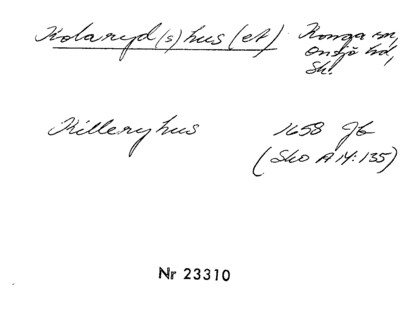 Kolaryd(s)hus(et) Konga sn,
Onsjö hd,
Sk.
Killeryhus 1658 Jb
(SkO A 14:135)
Nr 23310